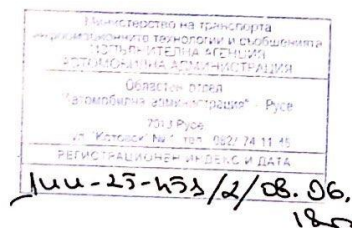 Министерство на транспорта
информационните технологии и съобщенията
ИЗПЪЛНИТЕЛНА АГЕНЦИЯ
АВТОМОБИЛНА АДМИНИСТРАЦИЯ
Областен отдел
"Автомобилна администрация" - Русе
7013 Русе
ул. "Котовск" № 1, тел. 082/ 74 11
РЕГИСТРАЦИОНЕН ИНДЕКС И ДАТА
/2/08.06.
18